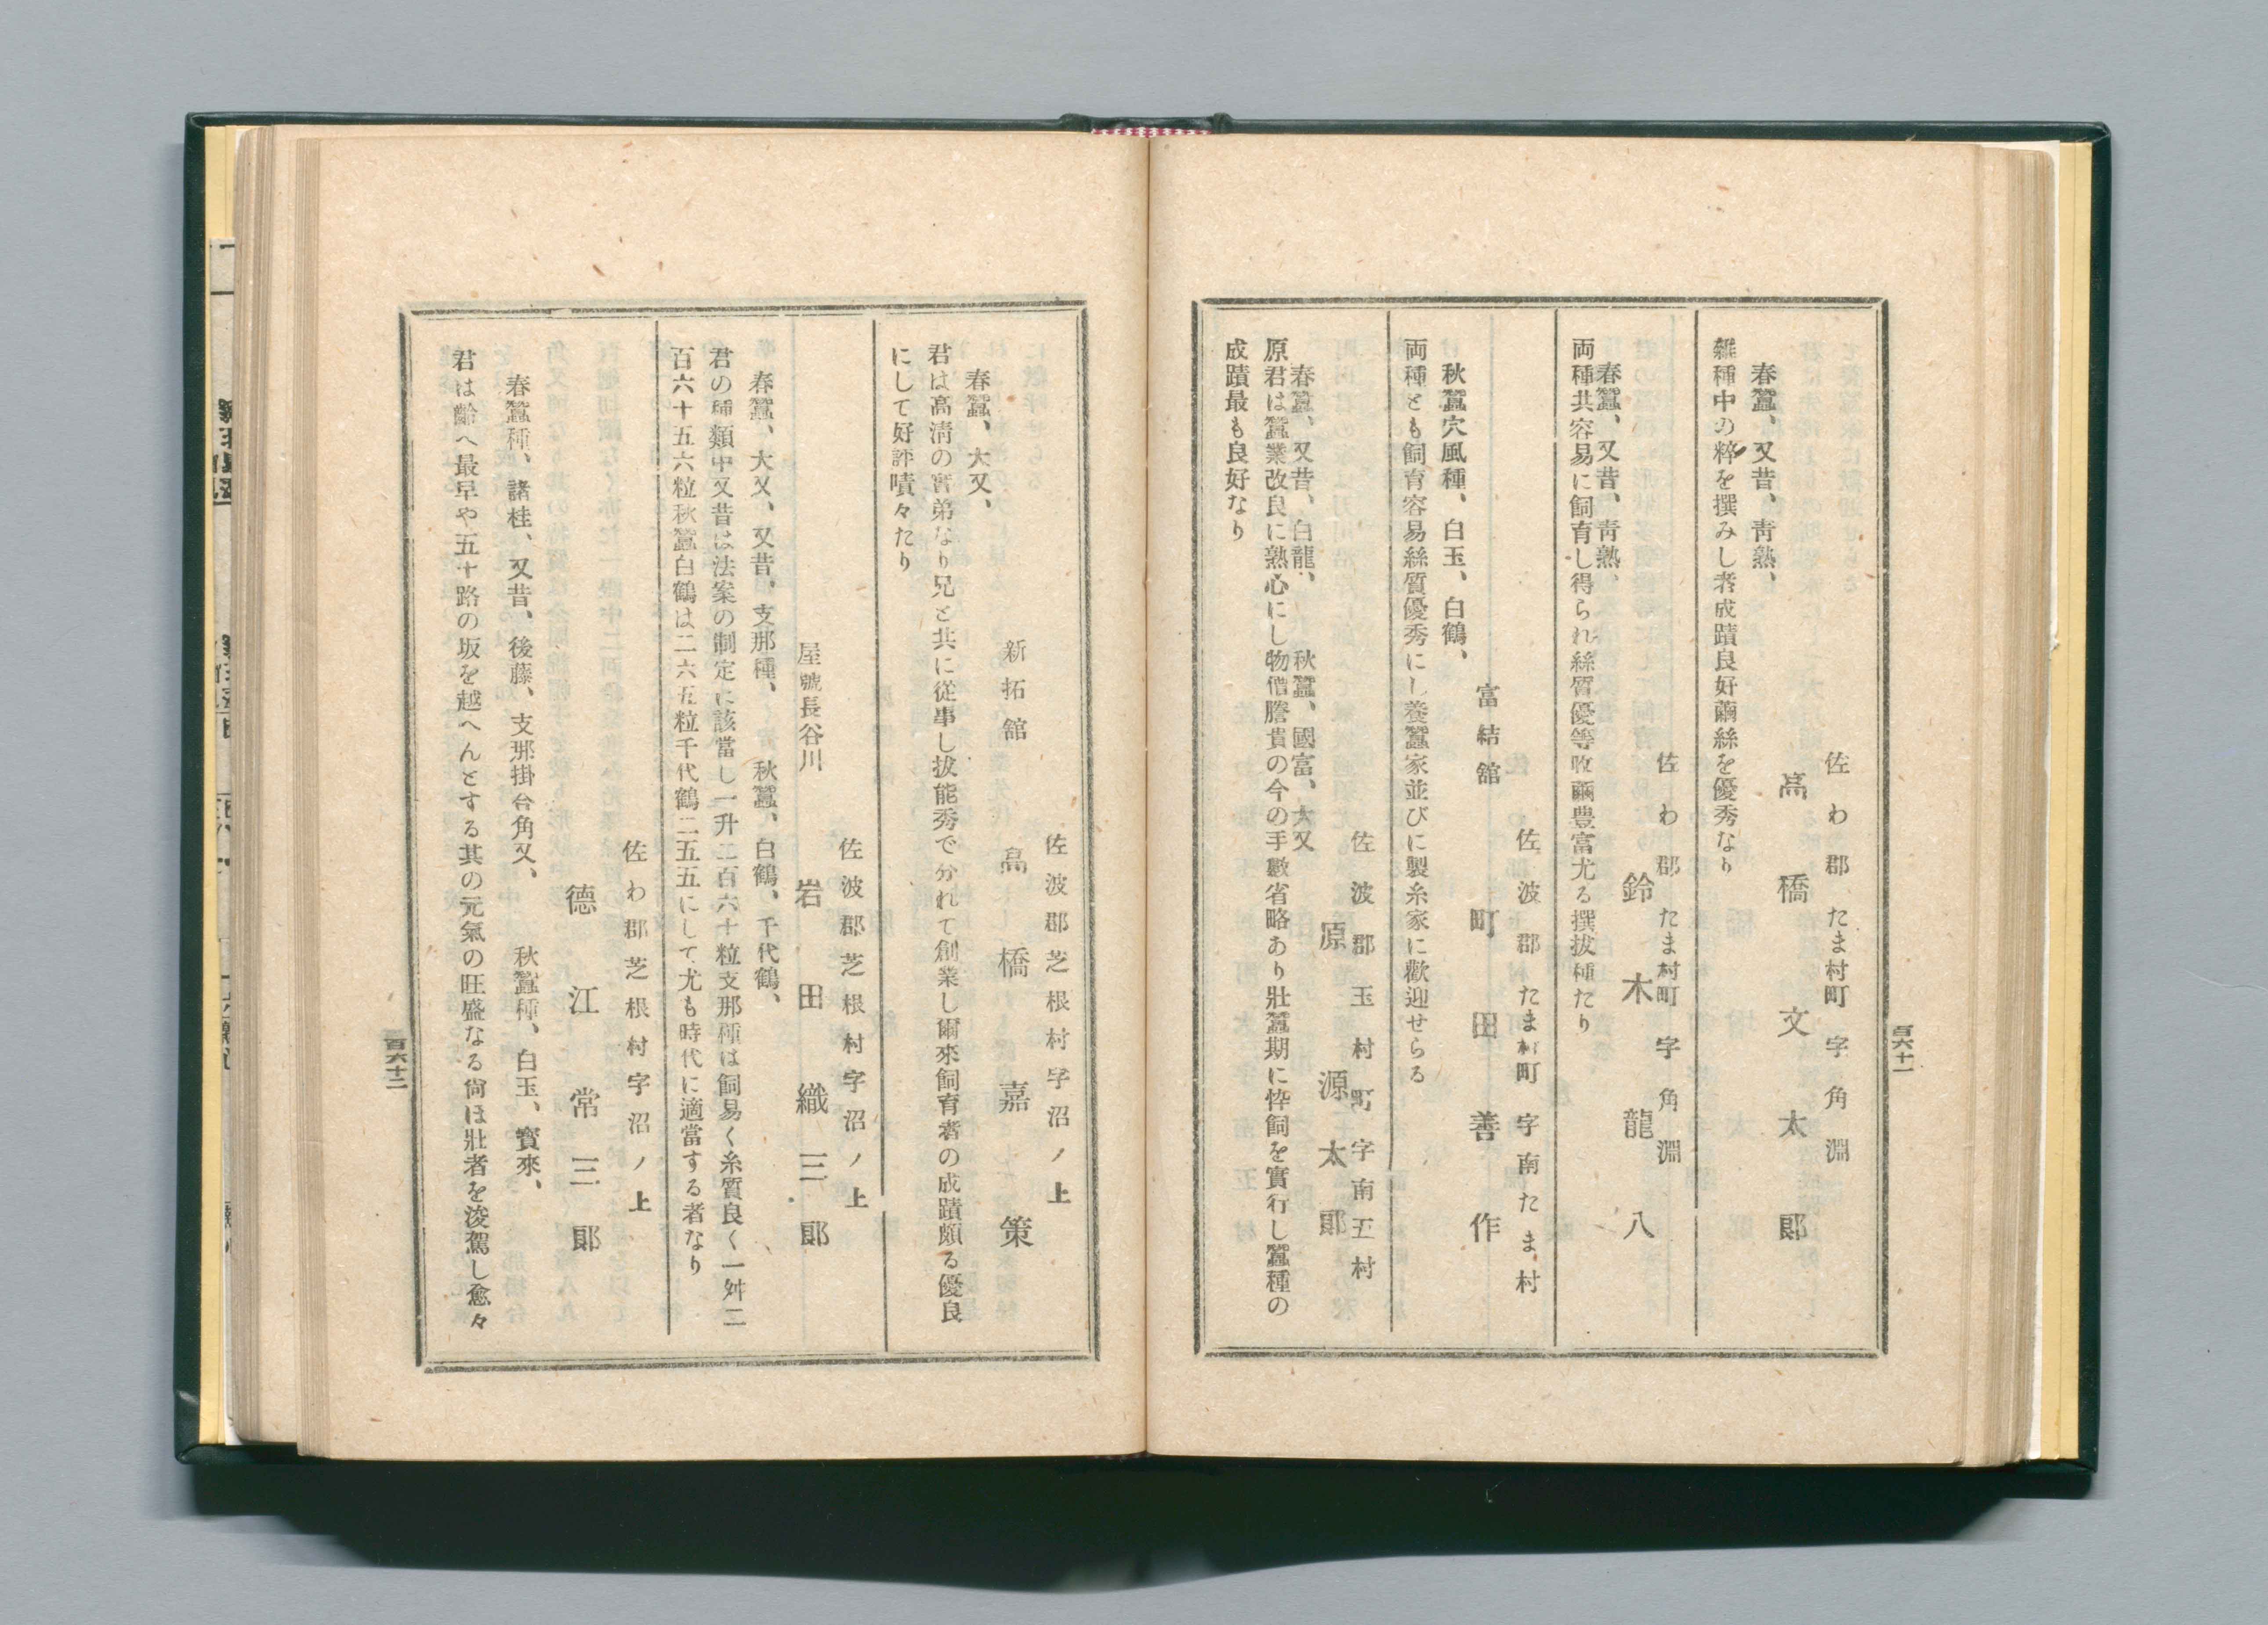 佐わ郡たま村町字角淵
髙橋文太郞
春蠶、又昔、靑熟、
雜種中の粹を撰みし者成蹟良好繭絲を優秀なり
佐わ郡たま村町字角淵
鈴木龍八
春蠶、又昔、靑熟、
両種共容易に飼育し得られ絲質優等收繭豊富尤る撰拔種たり
佐波郡たま村町字南たま村
富結舘
町田善作
秋蠶穴風種、白玉、白鶴、
両種とも飼育容易絲質優秀にし養蠶家並びに製糸家に歡迎せらる
佐波郡玉村町字南玉村
原源太郞
春蠶、又昔、白龍、秋蠶、國富、大又
原君は蠶業改良に熟心にし物價騰貴の今の手數省略あり壯蠶期に枠飼を實行し蠶種の
成蹟最も良好なり
百六十一
佐波郡芝根村字沼ノ上
新拓舘
髙橋嘉策
春蠶、大又、
君は髙淸の實弟なり兄と共に從事し拔能秀で分れて創業し爾來飼育者の成蹟頗る優良
にして好評嘖々たり
佐波郡芝根村字沼ノ上
屋號長谷川
岩田織三郞
春蠶、大又、又昔、支那種、秋蠶、白鶴、千代鶴、
君の種類中又昔は法案の制定に該當し一升二百六十粒支那種は飼易く糸質良く一舛二
百六十五六粒秋蠶白鶴は二六五粒千代鶴二五五にして尤も時代に適當する者なり
佐わ郡芝根村字沼ノ上
德江常三郞
春蠶種、諸桂、又昔、後藤、支那掛合角又、秋蠶種、白玉、寳來、
君は齡へ最早や五十路の坂を越へんとする其の元氣の旺盛なる尙ほ壯者を浚駕し愈々
百六十二